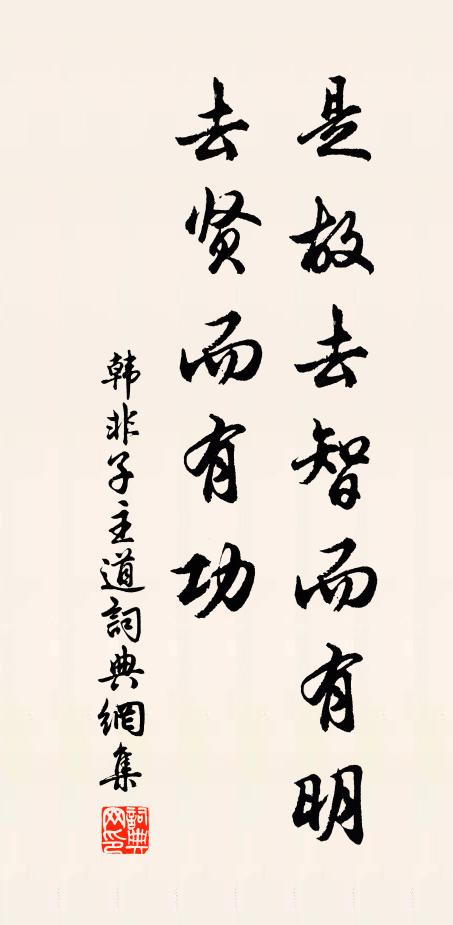 是故去智而有明
去贤而有功
韩非子主道詞典網集
詞典网印